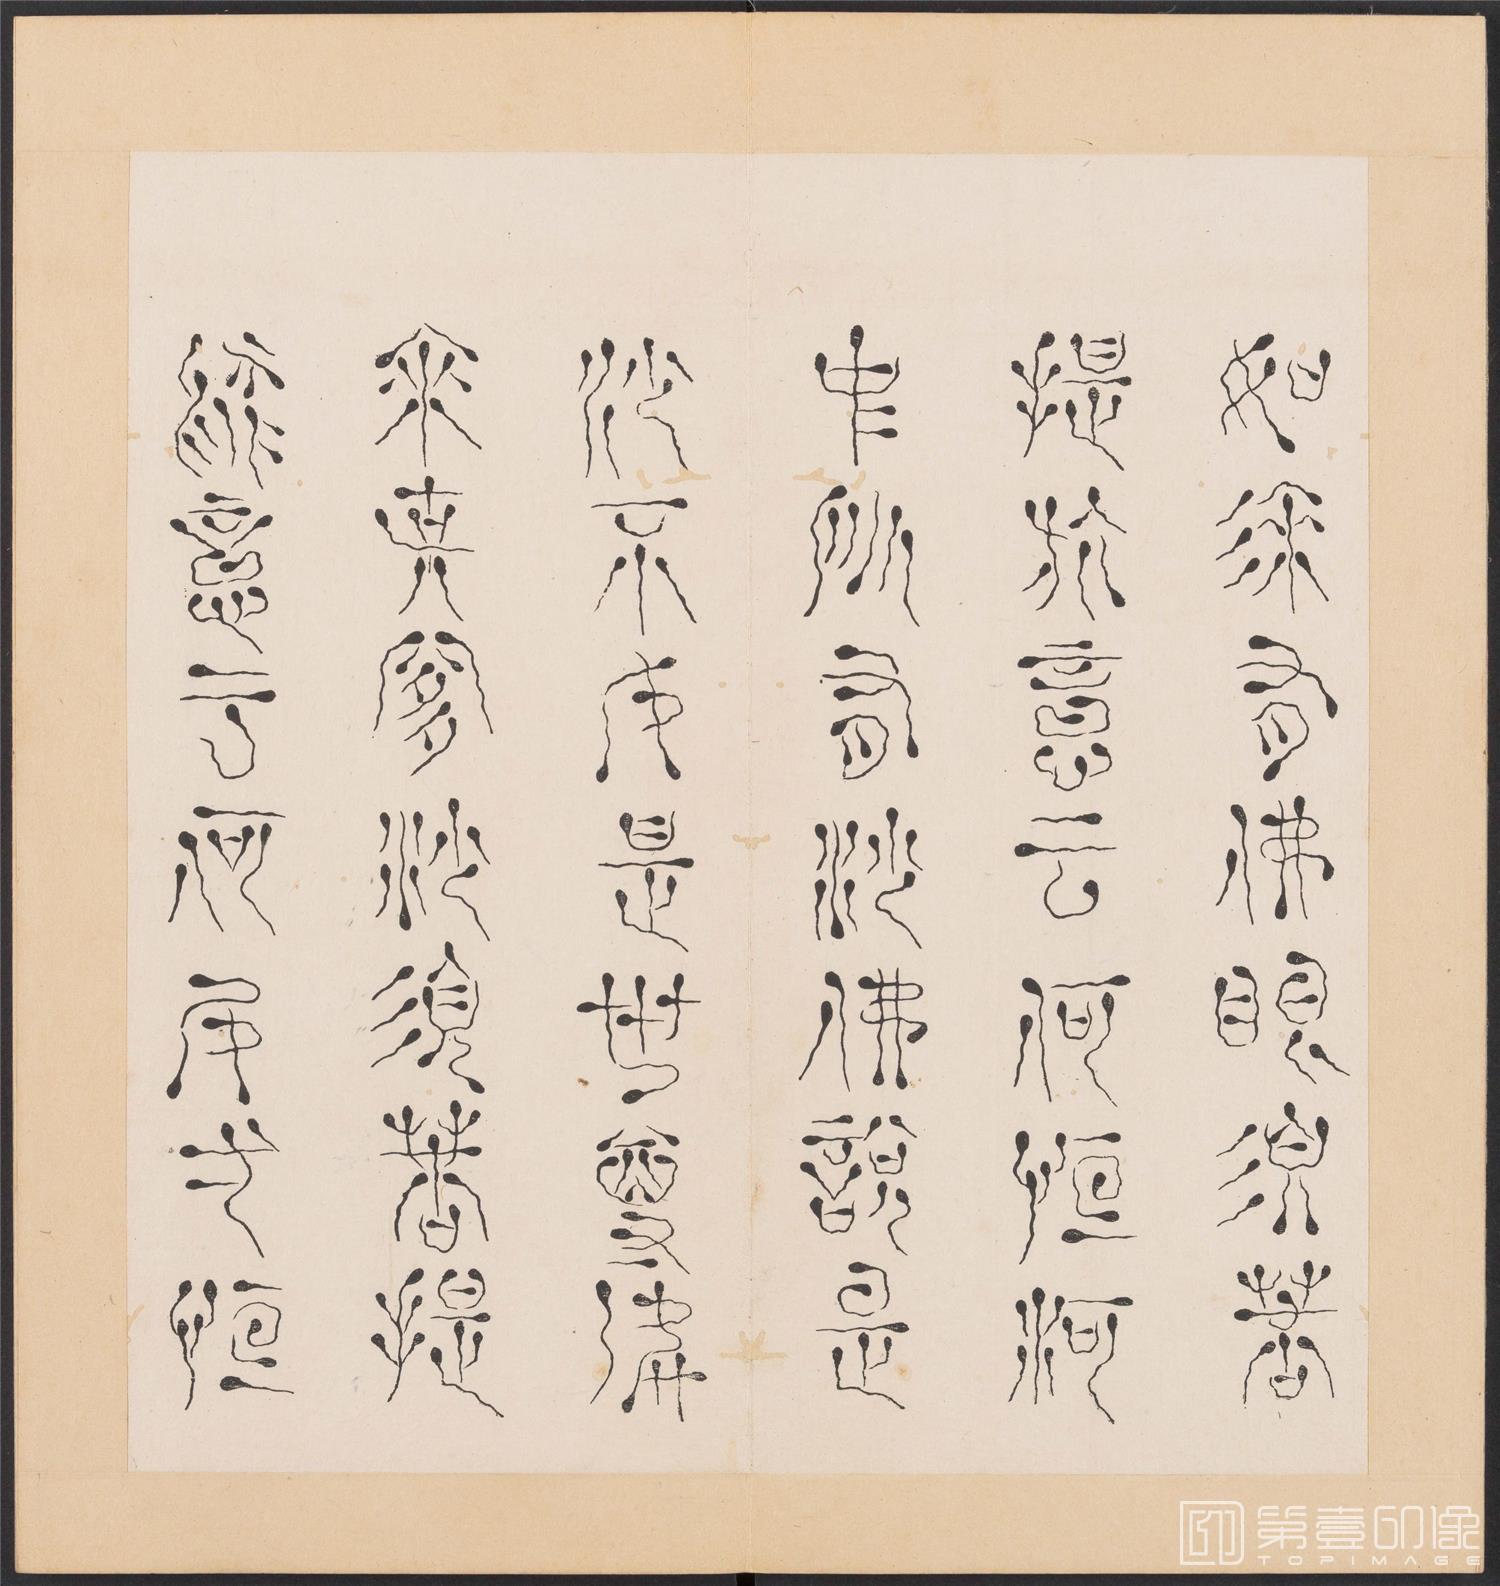 如來有佛眼須菩
提於意云何恒河
中所有沙佛說是
沙不如是世尊如
來說是沙須菩提
於意云何如一恒
第壹印像
TOPIMAGE